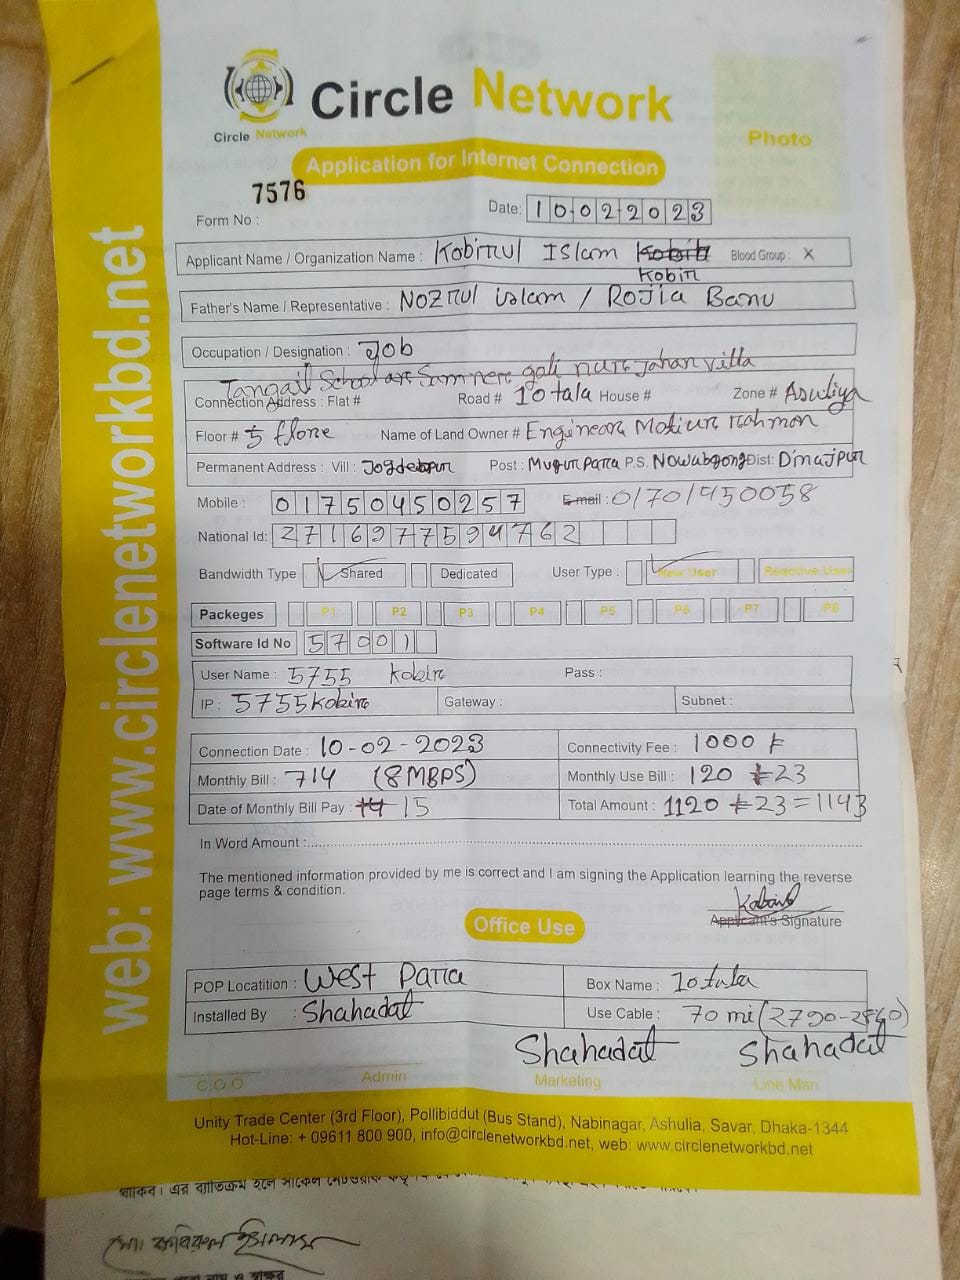 Circle Network
Circle Network
Application for Internet Connection
Photo
7576
Form No :
Date: 10-02-2023
Applicant Name / Organization Name : Kobirul Islam Kobir Blood Group : X
Father's Name / Representative : Nozrul islam / Rojia Banu
Occupation / Designation : Job
Tangail School gali nurjahan villa
Connection Address : Flat # Road # 10 tala House # Zone # Asuliya
Floor # 5 flore Name of Land Owner # Engineear Motiur Rahman
Permanent Address : Vill : Post : Mugurpara P.S. Nowabgong Dist: Dinajpur
Mobile : 01750450257 E-mail : 01701450058
National Id: 2716977594762
Bandwidth Type Shared Dedicated User Type : New User Reactive User
Packeges P1 P2 P3 P4 P5 P6 P7 P8
Software Id No 57001
User Name : 5755 kobir Pass :
IP : 5755kobir Gateway : Subnet :
Connection Date : 10-02-2023 Connectivity Fee : 1000 ৳
Monthly Bill : 714 (8MBPS) Monthly Use Bill : 120 +23
Date of Monthly Bill Pay : 15 Total Amount : 1120 +23=1143
In Word Amount :
The mentioned information provided by me is correct and I am signing the Application learning the reverse
page terms & condition.
Kabirul
Applicant's Signature
Office Use
POP Locatition : West Para Box Name : 10tula
Installed By : Shahadat Use Cable : 70 mi (2790-2860)
Shahadat Shahadat
C.O.O Admin Marketing Line Man
Unity Trade Center (3rd Floor), Pollibiddut (Bus Stand), Nabinagar, Ashulia, Savar, Dhaka-1344
Hot-Line: + 09611 800 900, info@circlenetworkbd.net, web: www.circlenetworkbd.net
web: www.circlenetworkbd.net
থাকিব। এর ব্যতিক্রম হলে সার্কেল নেটওয়ার্ক
মোঃ কবিরুল ইসলাম